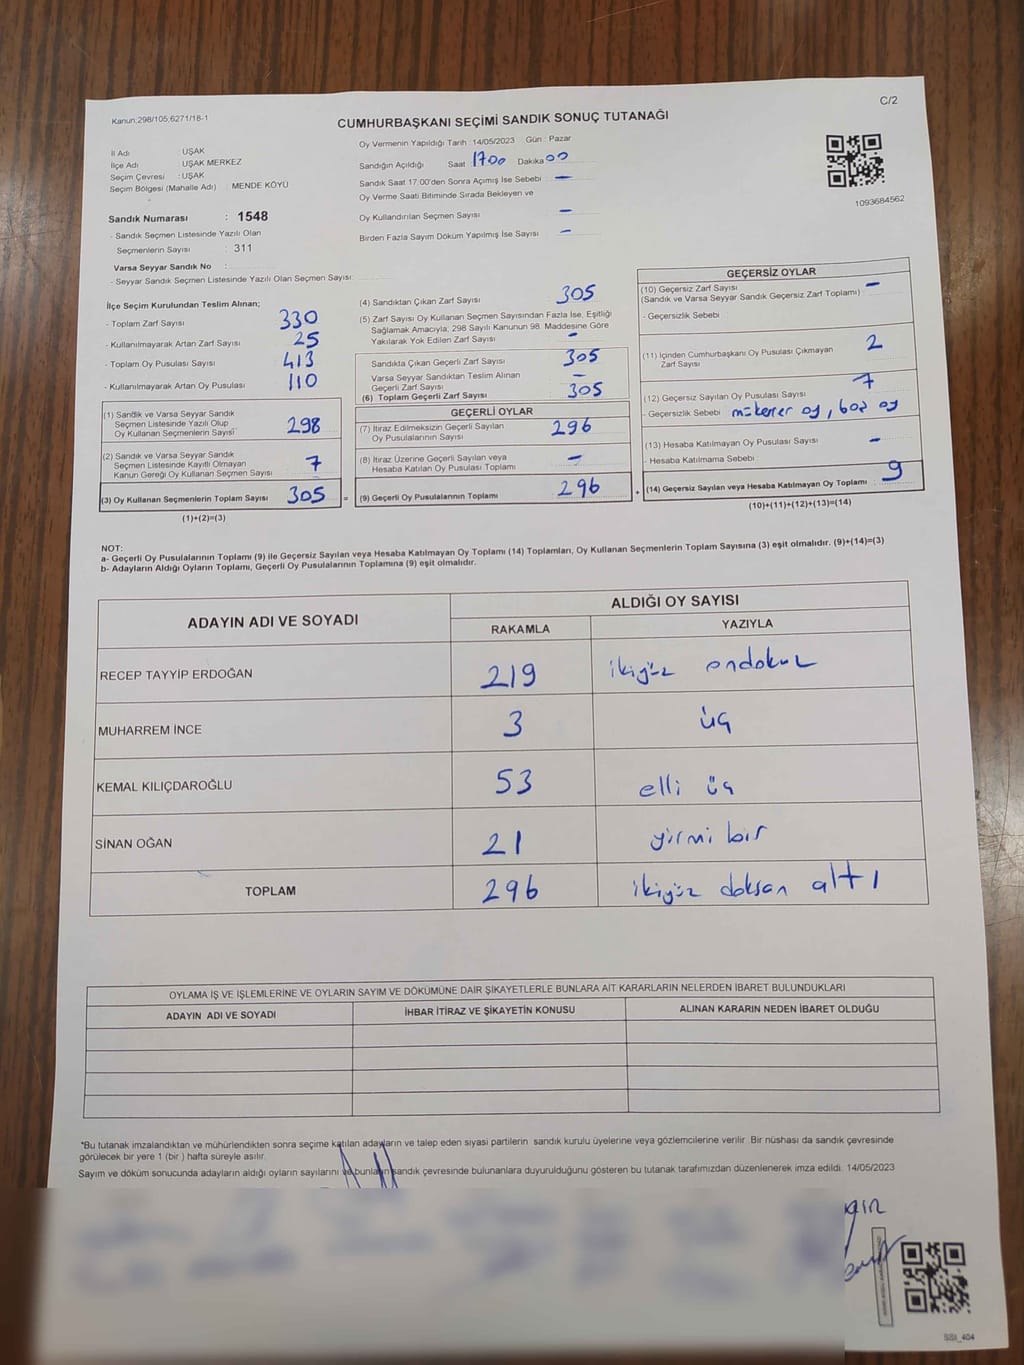 C/2
Kanun;298/105;6271/18-1
CUMHURBAŞKANI SEÇİMİ SANDIK SONUÇ TUTANAĞI
İl Adı : UŞAK
İlçe Adı : UŞAK MERKEZ
Seçim Çevresi : UŞAK
Seçim Bölgesi (Mahalle Adı) : MENDE KÖYÜ
Sandık Numarası : 1548
- Sandık Seçmen Listesinde Yazılı Olan
Seçmenlerin Sayısı : 311
Varsa Seyyar Sandık No :
- Seyyar Sandık Seçmen Listesinde Yazılı Olan Seçmen Sayısı:
Oy Vermenin Yapıldığı Tarih :14/05/2023 Gün : Pazar
Sandığın Açıldığı Saat 1700 Dakika 00
Sandık Saat 17:00'den Sonra Açımış İse Sebebi –
Oy Verme Saati Bitiminde Sırada Bekleyen ve
Oy Kullandırılan Seçmen Sayısı –
Birden Fazla Sayım Döküm Yapılmış İse Sayısı –
1093684562
İlçe Seçim Kurulundan Teslim Alınan;
- Toplam Zarf Sayısı 330
- Kullanılmayarak Artan Zarf Sayısı 25
- Toplam Oy Pusulası Sayısı 413
- Kullanılmayarak Artan Oy Pusulası 110
(1) Sandık ve Varsa Seyyar Sandık
Seçmen Listesinde Yazılı Olup
Oy Kullanan Seçmenlerin Sayısı 298
(2) Sandık ve Varsa Seyyar Sandık
Seçmen Listesinde Kayıtlı Olmayan
Kanun Gereği Oy Kullanan Seçmen Sayısı 7
(3) Oy Kullanan Seçmenlerin Toplam Sayısı 305 =
(1)+(2)=(3)
(4) Sandıktan Çıkan Zarf Sayısı 305
(5) Zarf Sayısı Oy Kullanan Seçmen Sayısından Fazla İse, Eşitliği
Sağlamak Amacıyla; 298 Sayılı Kanunun 98. Maddesine Göre
Yakılarak Yok Edilen Zarf Sayısı –
Sandıkta Çıkan Geçerli Zarf Sayısı 305
Varsa Seyyar Sandıktan Teslim Alınan
Geçerli Zarf Sayısı –
(6) Toplam Geçerli Zarf Sayısı 305
GEÇERLİ OYLAR
(7) İtiraz Edilmeksizin Geçerli Sayılan
Oy Pusulalarının Sayısı 296
(8) İtiraz Üzerine Geçerli Sayılan veya
Hesaba Katılan Oy Pusulası Toplamı –
(9) Geçerli Oy Pusulalarının Toplamı 296 +
GEÇERSİZ OYLAR
(10) Geçersiz Zarf Sayısı –
(Sandık ve Varsa Seyyar Sandık Geçersiz Zarf Toplamı)
- Geçersizlik Sebebi
(11) İçinden Cumhurbaşkanı Oy Pusulası Çıkmayan
Zarf Sayısı 2
(12) Geçersiz Sayılan Oy Pusulası Sayısı 7
- Geçersizlik Sebebi mükerrer oy, boş oy
(13) Hesaba Katılmayan Oy Pusulası Sayısı –
- Hesaba Katılmama Sebebi
(14) Geçersiz Sayılan veya Hesaba Katılmayan Oy Toplamı : 9
(10)+(11)+(12)+(13)=(14)
NOT:
a- Geçerli Oy Pusulalarının Toplamı (9) ile Geçersiz Sayılan veya Hesaba Katılmayan Oy Toplamı (14) Toplamları, Oy Kullanan Seçmenlerin Toplam Sayısına (3) eşit olmalıdır. (9)+(14)=(3)
b- Adayların Aldığı Oyların Toplamı, Geçerli Oy Pusulalarının Toplamına (9) eşit olmalıdır.
ADAYIN ADI VE SOYADI ALDIĞI OY SAYISI
RAKAMLA YAZIYLA
RECEP TAYYİP ERDOĞAN 219 ikiyüz ondokuz
MUHARREM İNCE 3 üç
KEMAL KILIÇDAROĞLU 53 elli üç
SİNAN OĞAN 21 yirmi bir
TOPLAM 296 ikiyüz doksan altı
OYLAMA İŞ VE İŞLEMLERİNE VE OYLARIN SAYIM VE DÖKÜMÜNE DAİR ŞİKAYETLERLE BUNLARA AİT KARARLARIN NELERDEN İBARET BULUNDUKLARI
ADAYIN ADI VE SOYADI İHBAR İTİRAZ VE ŞİKAYETİN KONUSU ALINAN KARARIN NEDEN İBARET OLDUĞU
*Bu tutanak imzalandıktan ve mühürlendikten sonra seçime katılan adayların ve talep eden siyasi partilerin sandık kurulu üyelerine veya gözlemcilerine verilir. Bir nüshası da sandık çevresinde
görülecek bir yere 1 (bir ) hafta süreyle asılır.
Sayım ve döküm sonucunda adayların aldığı oyların sayılarını ve bunların sandık çevresinde bulunanlara duyurulduğunu gösteren bu tutanak tarafımızdan düzenlenerek imza edildi. 14/05/2023
SSI_404